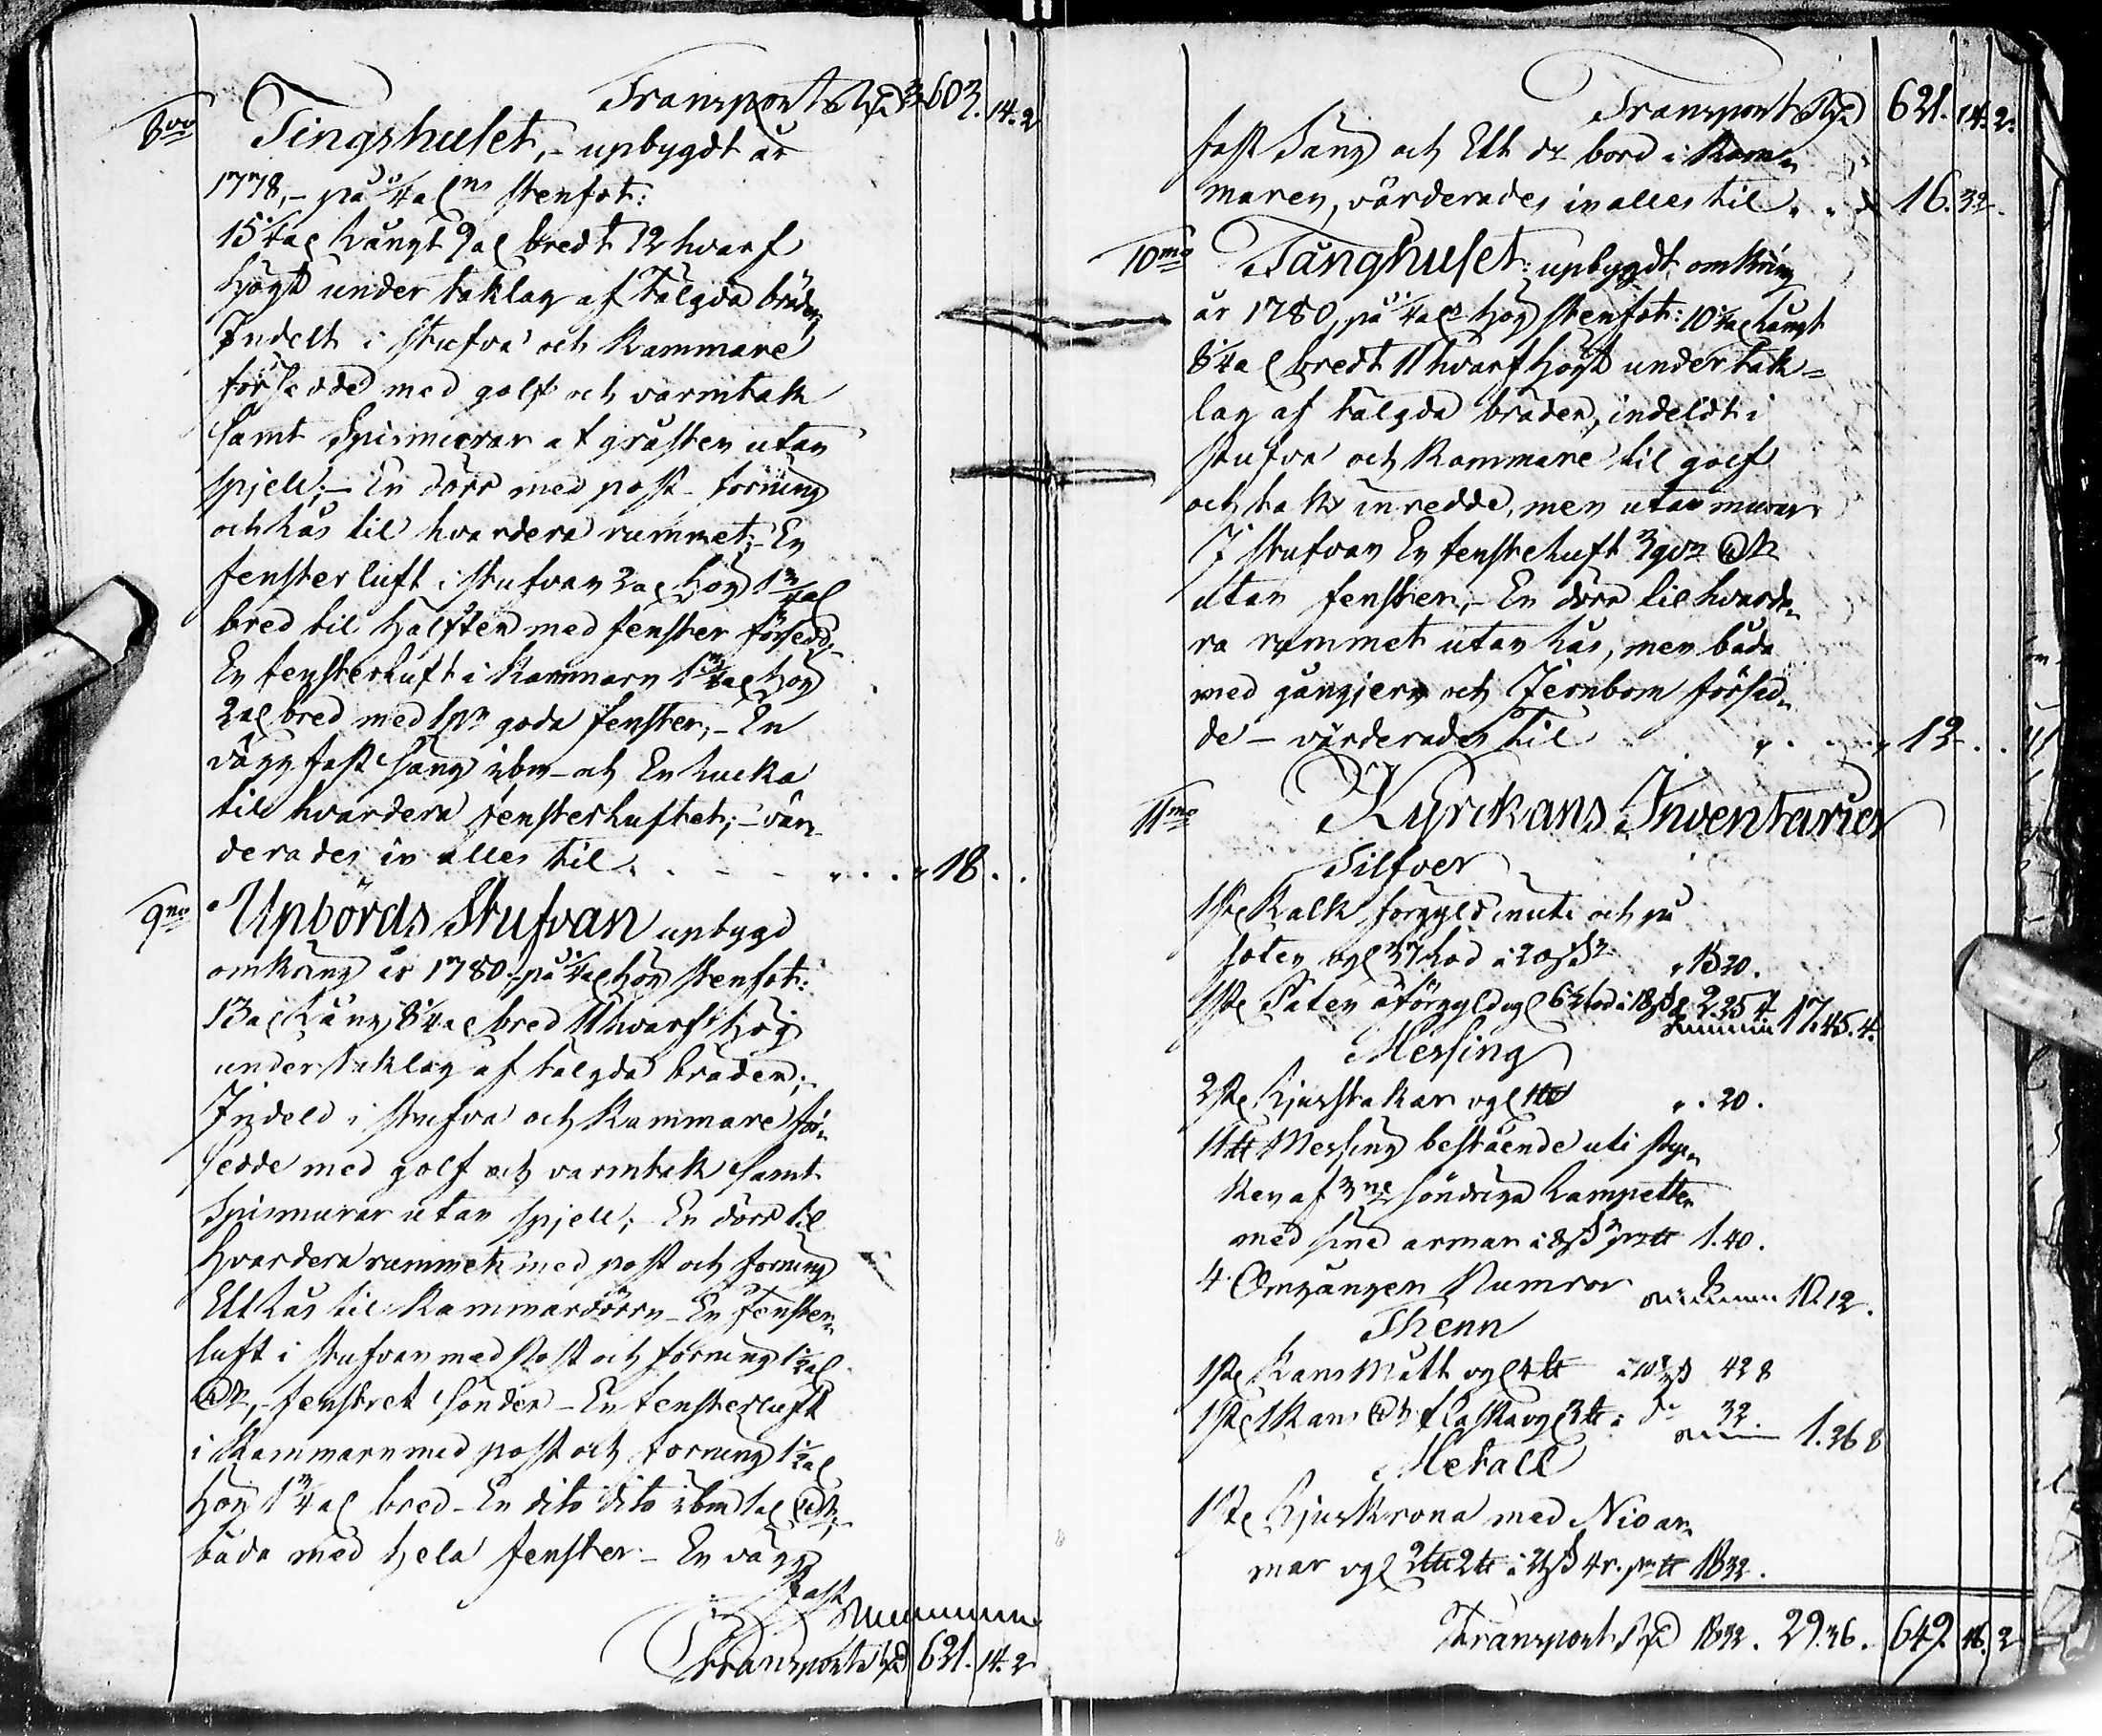 Transport Rd 603. 14. 2
8vo Tingshuset, – upbygdt år
1778, – på 1/4 aln stenfot:
15 1/4 al långt 9 al bredt 12 hvarf
högt under taklag af tälgda bräder,
Indelt i stufva och Kammare
försedde med golf och varmtak
samt Spismurar af gråsten utan
spjell; – En dörr med post – forning
och lås til hvardera rummet; – En
fensterluft i stufvan 2 al hög 1 3/4 al
bred til hälften med fenster försedd; –
En fensterluft i Kammarn 1 3/4 al hög
2 al bred med 1 pr goda fenster, – En
väggfast säng ibm – och En lucka
til hvardera fensterluftet; – vär-
derades in alles til . . . . 18. . .
9no Upbörds Stufvan upbygd
omkring år 1780: på 1/4 al hög stenfot:
13 al lång, 8 1/4 al bred 11 hvarf hög
under taklag af talgda bräder; –
Indeld i stufva och Kammare för-
sedde med golf och varmtak samt
Spismurar utan spjell; – En dörr til
hvardera rummet med post och forning
Ett lås til Kammardörrn – En fenster-
luft i stufvan med Post och forning 1 1/2 al
, – fenstret sönder – En fensterluft
i Kammarn med post och forning 1 1/2 al
hög 1 3/4 al bred – En dito dito ibm 1 al
båda med hela fenster – En vägg
fast
Transport Rd 621. 14. 2
Transport Rd 621. 14. 2.
fast Säng och Ett do bord i Kam-
maren, värderades in alles til . . . 16. 32.
10mo Fånghuset: upbygdt omkring
år 1780, på 1/4 al hög stenfot: 10 1/4 al långt
8 1/4 al bredt 11 hvarf högt under tak=
lag af tälgda bräder, indeldt i
stufva och Kammare til golf
och tak inredde, men utan murar
I stufvan En fensterluft 3 qvr
utan fenster, – En dörr til hvarde-
ra rummet utan lås, men båda
med gångjern och Jernbom försed-
de – värderades til . . . 12. . .
11mo Kyrkans Inventarier
Silfver
1 st Kalk förgyld inuti och på
foten vgl 37 lod a 20 ß 15 20.
1 st Paten oförgyld vgl 6 1/2 lod a 18 ß 2. 25 4 17. 45. 4.
Messing
2 st Ljusstakar vgl 1 ℔ . . 20.
11 ℔ Messing bestående uti styc-
ken af 3ne söndriga Lampetter
med sine armar a 8 ß pr ℔ 1. 40.
4 Omgånger Numror 8. 10. 12.
Thenn
1 st Kans Mått vgl 4 ℔ a 10 2/3 ß 42 8
1 st 1 Kans flaska vgl 3 ℔ a do 32. 1. 26 8
Metall
1 st Ljuskrona med Nio ar-
mar vgl 2 L℔ 2 ℔ a 21 ß 4 r. pr ℔ 18 32.
Transport Rd 18 32. 29. 36. 649. 46. 2